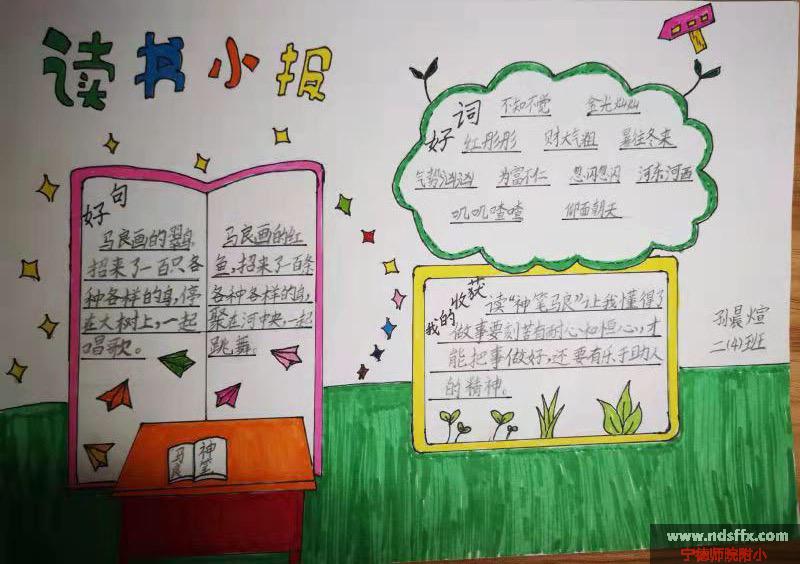 读书小报
好句
马良画的翠鸟,
招来了一百只各
种各样的鸟,停
在大树上,一起
唱歌。
马良画的红
鱼,招来了一百条
各种各样的鱼,
聚在河中央,一起
跳舞。
神笔
马良
好词
不知不觉 金光灿灿
红彤彤 财大气粗 暑往冬来
气势汹汹 为富不仁 忽闪忽闪 河东河西
叽叽喳喳 仰面朝天
我的收获
读“神笔马良”让我懂得了
做事要刻苦有耐心和恒心,才
能把事做好,还要有乐于助人
的精神。
孙晨煊
二(4)班
www.ndsffx.com
宁德师院附小